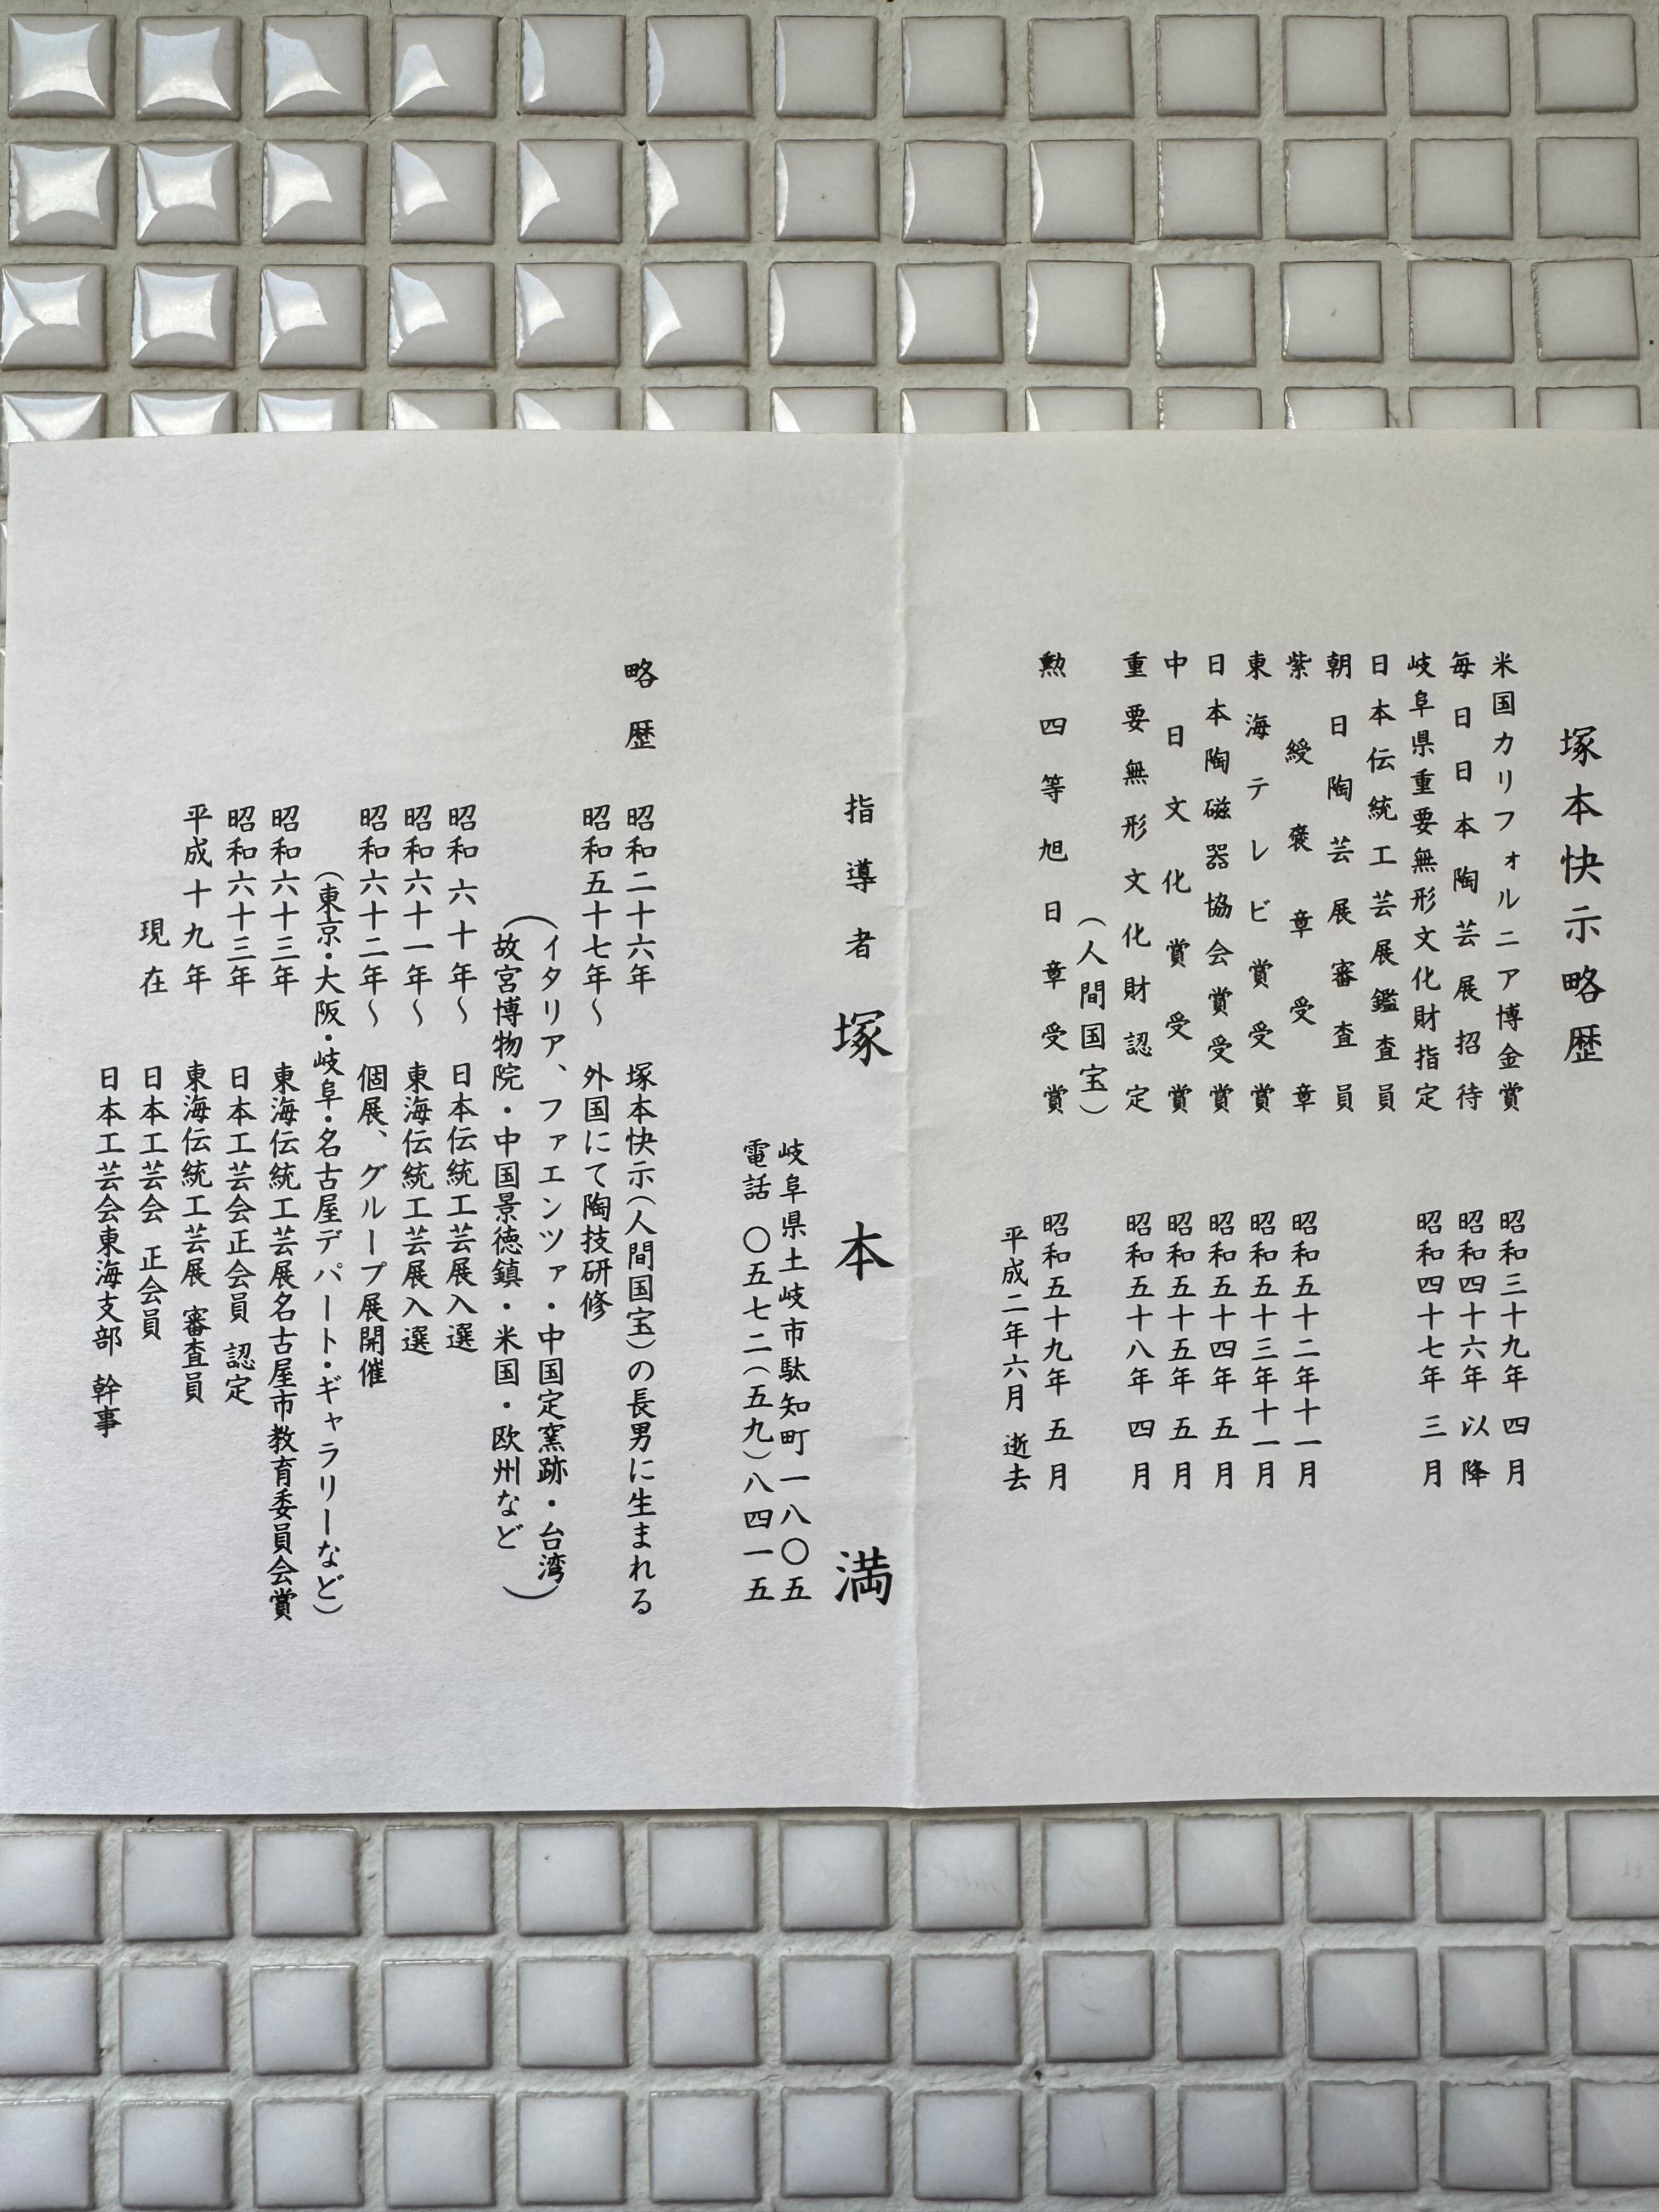 塚本快示略歴
米国カリフォルニア博金賞 昭和三十九年 四月
毎日日本陶芸展招待 昭和四十六年 以降
岐阜県重要無形文化財指定 昭和四十七年 三月
日本伝統工芸展鑑査員
朝日陶芸展審査員
紫綬褒章受章 昭和五十二年十一月
東海テレビ賞受賞 昭和五十三年十一月
日本陶磁器協会賞受賞 昭和五十四年 五月
中日文化賞受賞 昭和五十五年 五月
重要無形文化財認定 昭和五十八年 四月
(人間国宝)
勲四等旭日章受賞 昭和五十九年 五月
平成二年六月 逝去
指導者 塚本 満
岐阜県土岐市駄知町一八〇五
電話 〇五七二(五九)八四一五
略歴 昭和二十六年 塚本快示(人間国宝)の長男に生まれる
昭和五十七年〜 外国にて陶技研修
(イタリア、ファエンツァ・中国定窯跡・台湾
故宮博物院・中国景徳鎮・米国・欧州など)
昭和六十年〜 日本伝統工芸展入選
昭和六十一年〜 東海伝統工芸展入選
昭和六十二年〜 個展、グループ展開催
(東京・大阪・岐阜・名古屋デパート・ギャラリーなど)
昭和六十三年 東海伝統工芸展名古屋市教育委員会賞
昭和六十三年 日本工芸会正会員 認定
平成十九年 東海伝統工芸展 審査員
現在 日本工芸会 正会員
日本工芸会東海支部 幹事